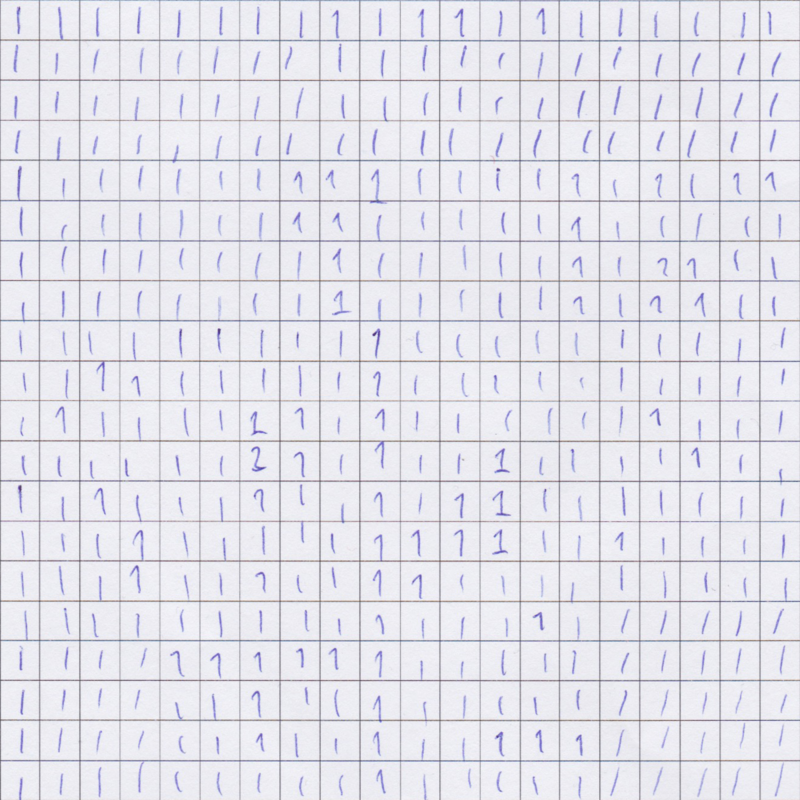 1 1 1 1 1 1 1 1 1 1 1 1 1 1 1 1 1 1 1 1
1 1 1 1 1 1 1 1 1 1 1 1 1 1 1 1 1 1 1 1
1 1 1 1 1 1 1 1 1 1 1 1 1 1 1 1 1 1 1 1
1 1 1 1 1 1 1 1 1 1 1 1 1 1 1 1 1 1 1 1
1 1 1 1 1 1 1 1 1 1 1 1 1 1 1 1 1 1 1 1
1 1 1 1 1 1 1 1 1 1 1 1 1 1 1 1 1 1 1 1
1 1 1 1 1 1 1 1 1 1 1 1 1 1 1 1 1 1 1 1
1 1 1 1 1 1 1 1 1 1 1 1 1 1 1 1 1 1 1 1
1 1 1 1 1 1 1 1 1 1 1 1 1 1 1 1 1 1 1 1
1 1 1 1 1 1 1 1 1 1 1 1 1 1 1 1 1 1 1 1
1 1 1 1 1 1 1 1 1 1 1 1 1 1 1 1 1 1 1 1
1 1 1 1 1 1 1 1 1 1 1 1 1 1 1 1 1 1 1
1 1 1 1 1 1 1 1 1 1 1 1 1 1 1 1 1 1 1 1
1 1 1 1 1 1 1 1 1 1 1 1 1 1 1 1 1 1 1 1
1 1 1 1 1 1 1 1 1 1 1 1 1 1 1 1 1 1 1 1
1 1 1 1 1 1 1 1 1 1 1 1 1 1 1 1 1 1 1 1
1 1 1 1 1 1 1 1 1 1 1 1 1 1 1 1 1 1 1 1
1 1 1 1 1 1 1 1 1 1 1 1 1 1 1 1 1 1 1 1
1 1 1 1 1 1 1 1 1 1 1 1 1 1 1 1 1 1 1 1
1 1 1 1 1 1 1 1 1 1 1 1 1 1 1 1 1 1 1 1